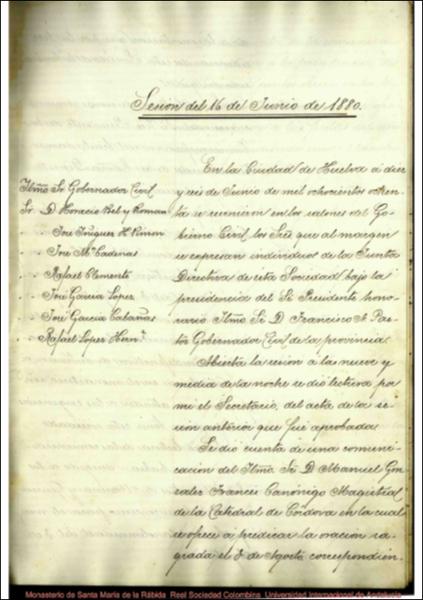 Sesion del 16 de Junio de 1880.
Iltmo Sr Gobernador Civil
Sr. D. Horacio Bel y Roman
" " José Iñiguez H. Pinzon
" " José Ma Cadenas
" " Rafael Clemente
" " José Garcia Lopez
" " José Garcia Cabañas
" " Rafael Lopez Hern.
En la Ciudad de Huelva á diez
y seis de Junio de mil ochocientos ochen-
ta se reunieron en los salones del Go-
bierno Civil, los Sres que al margen
se expresan individuos de la Junta
Directiva de esta Sociedad bajo la
presidencia del Sr Presidente hono-
rario Iltmo Sr D. Francisco
Gobernador Civil de la provincia
Abierta la sesion á las nueve y
media de la noche se dió lectura por
mi el Secretario, del acta de la se-
sion anterior que fué aprobada
Se dio cuenta de una comuni-
cacion del Iltmo. Sr D Manuel Gon-
zalez Francés Canónigo Magistral
de la Catedral de Córdova en la cual
se ofrece á predicar la oracion sa-
grada el 3 de Agosto correspondien.
Monasterio de Santa María de la Rábida. Real Sociedad Colombina. Universidad Internacional de Andalucía